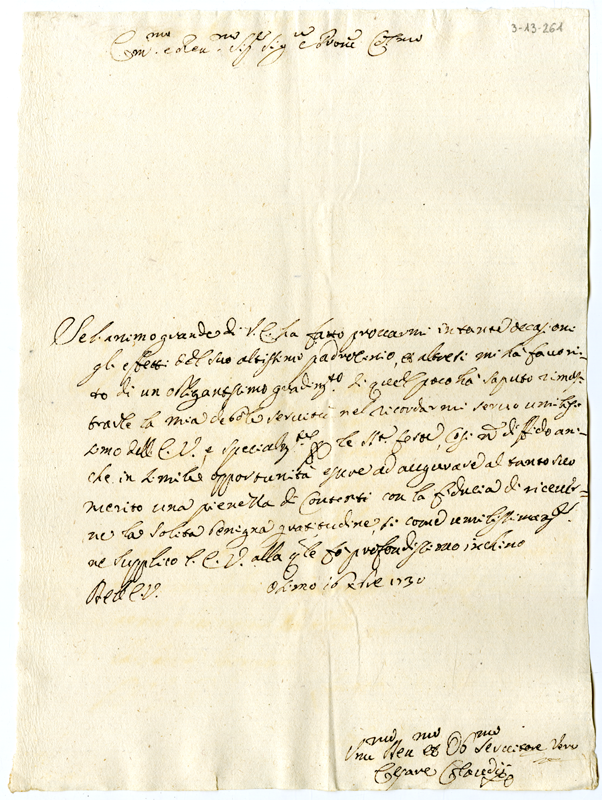 3-13-261
Em.mo e Rev.mo Sig.r Sig.r e Prone Col.mo
Se l'animo grande di V.E. ha fatto provarmi in tante occasioni
gli effetti del suo altissimo padrocinio, et altresi mi ha favori-
to di un obligantissimo gradim.to di quel poco ha saputo dimos-
trarle la mia debole servitù nel ricordarmi servo umilis-
simo dell'E.V., e specialm.te le SS.te feste, così nõ diffido an-
che in simile opportunità essere ad augurare al tanto suo
merito una pienezza di contenti con la fiducia di ricever-
ne la solita benigna gratitudine, si come umilissimam.te
ne supplico l'E.V. alla q.le fo profondissimo inchino
Dell'E.V. Osimo 16 Xbre 1730
Um.mo Dev.mo et Ob.mo Servitore Vero
Cesare Claudij